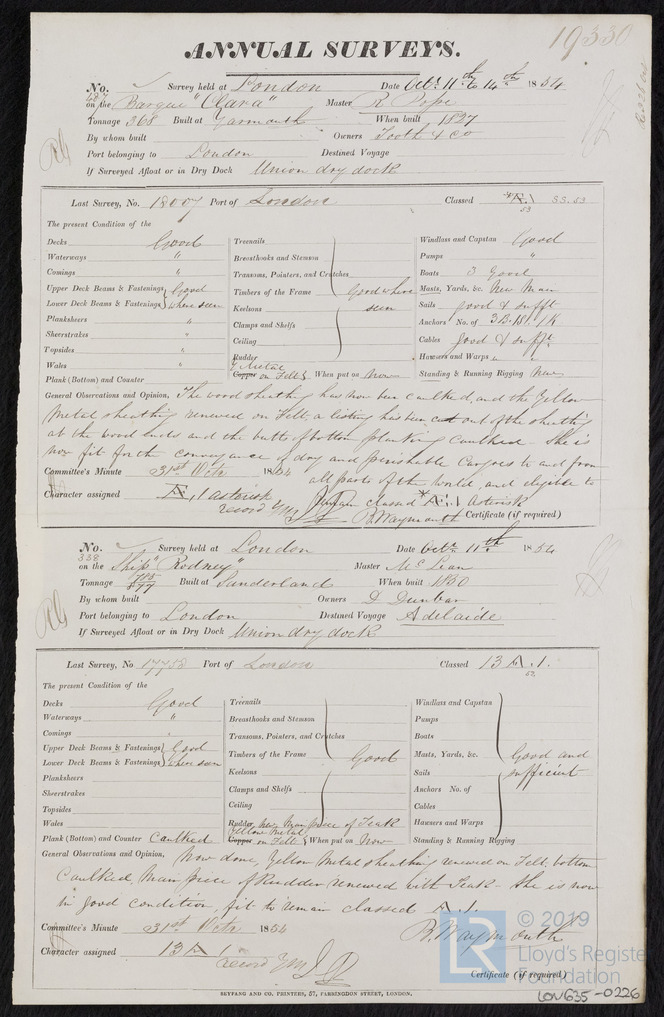 19330
ANNUAL SURVEYS.
No. Survey held at London Date Octr 11th to 14th 1854
on the Barque "Clara" Master R. Pope
Tonnage 368 Built at Yarmouth When built 1827
By whom built Owners Tooth & Co
Port belonging to London Destined Voyage
If Surveyed Afloat or in Dry Dock Union dry dock
Last Survey, No. 18007 Port of London Classed *Æ.1 53 33.53
The present Condition of the
Decks Good Treenails Windlass and Capstan Good
Waterways " Breasthooks and Stemson Pumps "
Comings " Transoms, Pointers, and Crutches Boats 3 Good
Upper Deck Beams & Fastenings Good Timbers of the Frame Good where Masts, Yards, &c. New Main
Lower Deck Beams & Fastenings where seen Keelsons seen Sails good & sufft
Planksheers " Clamps and Shelfs Anchors No. of 3.B. 1S. 1K
Sheerstrakes " Ceiling Cables Good & sufft
Topsides " Rudder Hawsers and Warps " "
Wales " Y Metal
Plank (Bottom) and Counter Copper on Felt When put on Now Standing & Running Rigging New
General Observations and Opinion, The wood sheathing has now been caulked, and the Yellow
Metal sheathing renewed on Felt, a listing has been cut out of the sheathing
at the wood ends and the butts of bottom planking caulked - She is
now fit for the conveyance of dry and perishable Cargoes to and from
Committee's Minute 31st Octr 1854 all parts of the World, and eligible to
Character assigned Æ.1 asterisk remain classed *Æ.1 Asterisk
record YM B. Waymouth Certificate (if required)
No. Survey held at London Date Octr 11th 1854
338
on the Ship "Rodney" Master McLean
Tonnage 877 Built at Sunderland When built 1850
By whom built Owners D Dunbar
Port belonging to London Destined Voyage Adelaide
If Surveyed Afloat or in Dry Dock Union dry dock
Last Survey, No 17753 Port of London Classed 13 A.1.
The present Condition of the
Decks Good Treenails Windlass and Capstan
Waterways " Breasthooks and Stemson Pumps
Comings " Transoms, Pointers, and Crutches Boats
Upper Deck Beams & Fastenings Good Timbers of the Frame Good Masts, Yards, &c. Good and
Lower Deck Beams & Fastenings where seen Keelsons Sails sufficient
Planksheers Clamps and Shelfs Anchors No. of
Sheerstrakes Ceiling Cables
Topsides Rudder New Main piece of Teak Hawsers and Warps
Wales Yellow Metal
Plank (Bottom) and Counter Caulked Copper on Felt When put on Now Standing & Running Rigging
General Observations and Opinion, Now done, Yellow Metal sheathing renewed on Felt, bottom
Caulked, Main piece of Rudder renewed with Teak - She is now
in good condition, fit to remain classed A.1.
Committee's Minute 31st Octr 1854 B. Waymouth
Character assigned 13 A 1
record YM Certificate (if required)
SEYFANG AND CO. PRINTERS, 57, FARRINGDON STREET, LONDON.
© 2019
LR Lloyd's Register
Foundation
LON635-0226